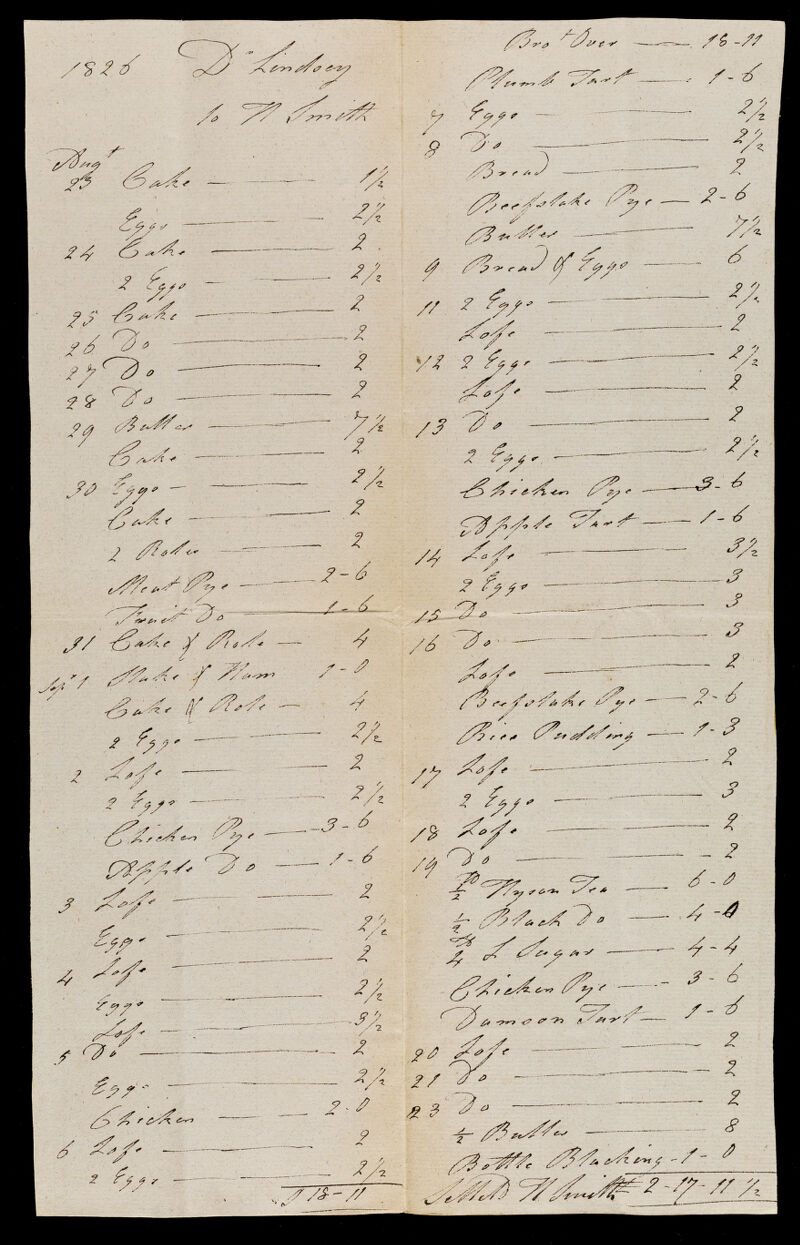 1826 Dr Lindsey
to H Smith
Augt
23 Cake — 1½
Eggs — 2½
24 Cake — 2
2 Eggs — 2½
25 Cake — 2
26 Do — 2
27 Do — 2
28 Do — 2
29 Butter — 7½
Cake — 2
30 Eggs — 2½
Cake — 2
2 Roles — 2
Meat Pye — 2-6
Fruit Do — 1-6
31 Cake & Role — 4
Sepr 1 Stake & Ham 1-0
Cake & Role — 4
2 Eggs — 2½
2 Lofe — 2
2 Eggs — 2½
Chicken Pye — 3-6
Apple Do — 1-6
3 Lofe — 2
Eggs — 2½
4 Lofe — 2
Eggs — 2½
Lofe — 3½
5 Do — 2
Eggs — 2½
Chicken — 2-0
6 Lofe — 2
2 Eggs — 2½
18-11
Brot Over — 18-11
Plumb Tart — 1-6
7 Eggs — 2½
8 Do — 2½
Bread — 2
Beefstake Pye — 2-6
Butter — 7½
9 Bread & Eggs — 6
11 2 Eggs — 2½
Lofe — 2
12 2 Eggs — 2½
Lofe — 2
13 Do — 2
2 Eggs — 2½
Chicken Pye — 3-6
Apple Tart — 1-6
14 Lofe — 3½
2 Eggs — 3
15 Do — 3
16 Do — 3
Lofe — 2
Beefstake Pye — 2-6
Rice Pudding — 1-3
17 Lofe — 2
2 Eggs — 3
18 Lofe — 2
19 Do — 2
½ lb Hyson Tea — 6-0
½ Black Do — 4-0
4 lb L Sugar — 4-4
Chicken Pye — 3-6
Damson Tart — 1-6
20 Lofe — 2
21 Do — 2
23 Do — 2
½ Butter — 8
Bottle Blacking - 1-0
Settld H Smith 2-17-11½